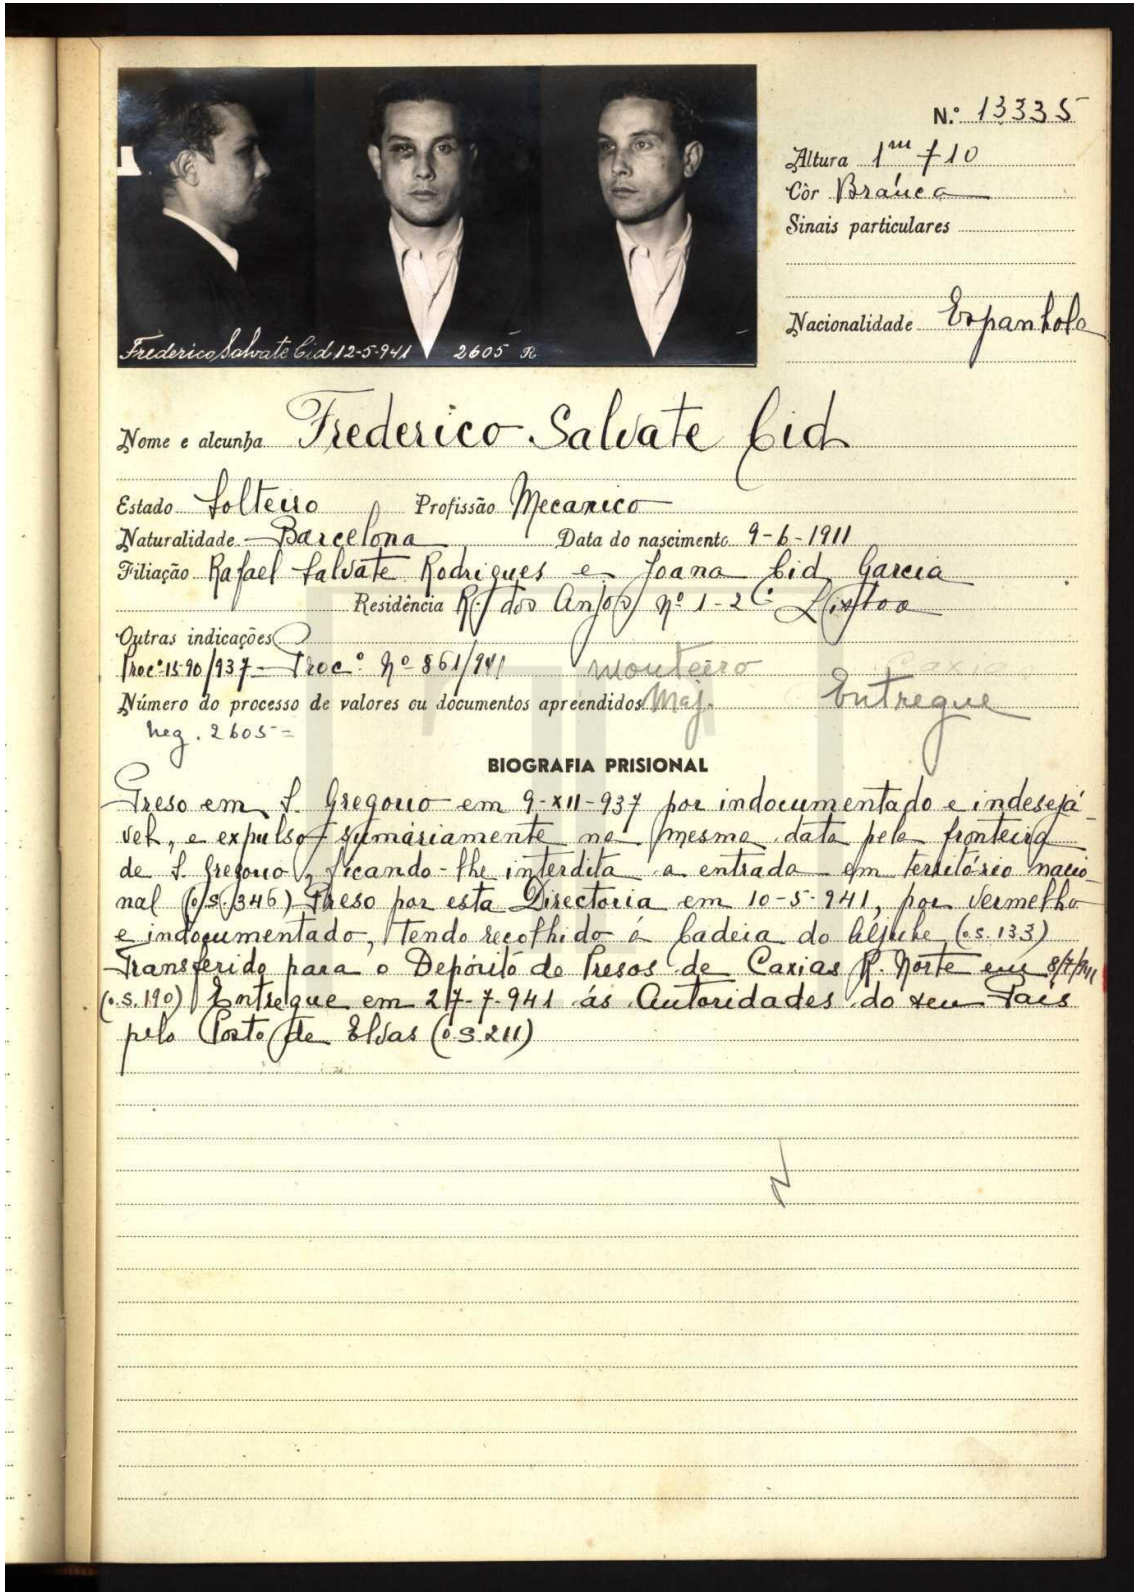 N.º 13335
Altura 1m 710
Côr Branca
Sinais particulares
Nacionalidade Espanhola
Frederico Salvate Cid 12-5-941 2605 R
Nome e alcunha Frederico Salvate Cid
Estado Solteiro Profissão Mecanico
Naturalidade Barcelona Data do nascimento 9-6-1911
Filiação Rafael Salvate Rodrigues e Joana Cid Garcia
Residência R. dos Anjos nº 1-2º Lisboa
Outras indicações
Proc.º 1590/937 - Proc.º Nº 861/941 Monteiro Caxias
Número do processo de valores ou documentos apreendidos Maj. Entregue
Neg. 2605 =
BIOGRAFIA PRISIONAL
Preso em S. Gregorio em 9-XII-937 por indocumentado e indesejá
vel, e expulso sumáriamente na mesma data pela fronteira
de S. Gregorio, ficando-lhe interdita a entrada em território nacio
nal (o/s./346) Preso por esta Directoria em 10-5-941, por vermelho
e indocumentado, tendo recolhido á Cadeia do Aljube (o.s. 133)
Transferido para o Depósito de Presos de Caxias R. Norte em 8/7/941
(o.s. 190) Entregue em 27-7-941 ás Autoridades do seu País
pelo Posto de Elvas (o.s. 211)